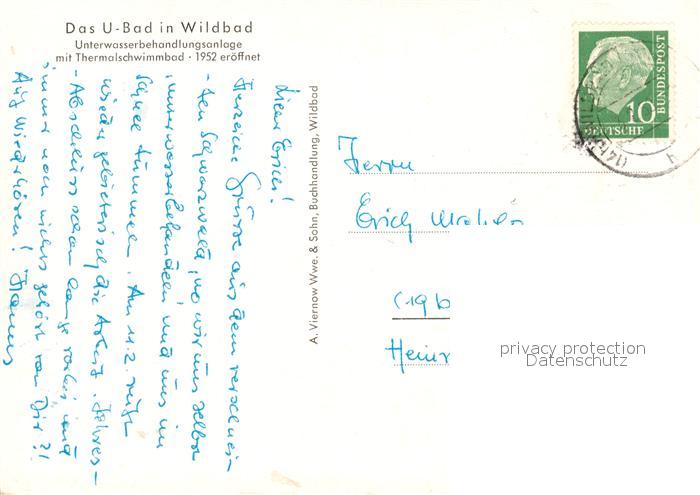 Das U-Bad in Wildbad
Unterwasserbehandlungsanlage
mit Thermalschwimmbad · 1952 eröffnet
Lieber Erich!
Herzliche Grüsse aus dem verschnei-
ten Schwarzwald, wo wir uns selbst
unterwasserbehandeln und uns im
Schnee tummeln. Am 11.2. ruft
wieder gebieterisch die Arbeit. Jahres-
-Abschluss schon lange vorbei und
immer noch nichts gehört von Dir?!
Auf Wiederhören! Hannes
A. Viernow Wwe. & Sohn, Buchhandlung, Wildbad
10
DEUTSCHE
BUNDESPOST
(14b)
Herrn
Erich
(19b
Heinr
privacy protection
Datenschutz